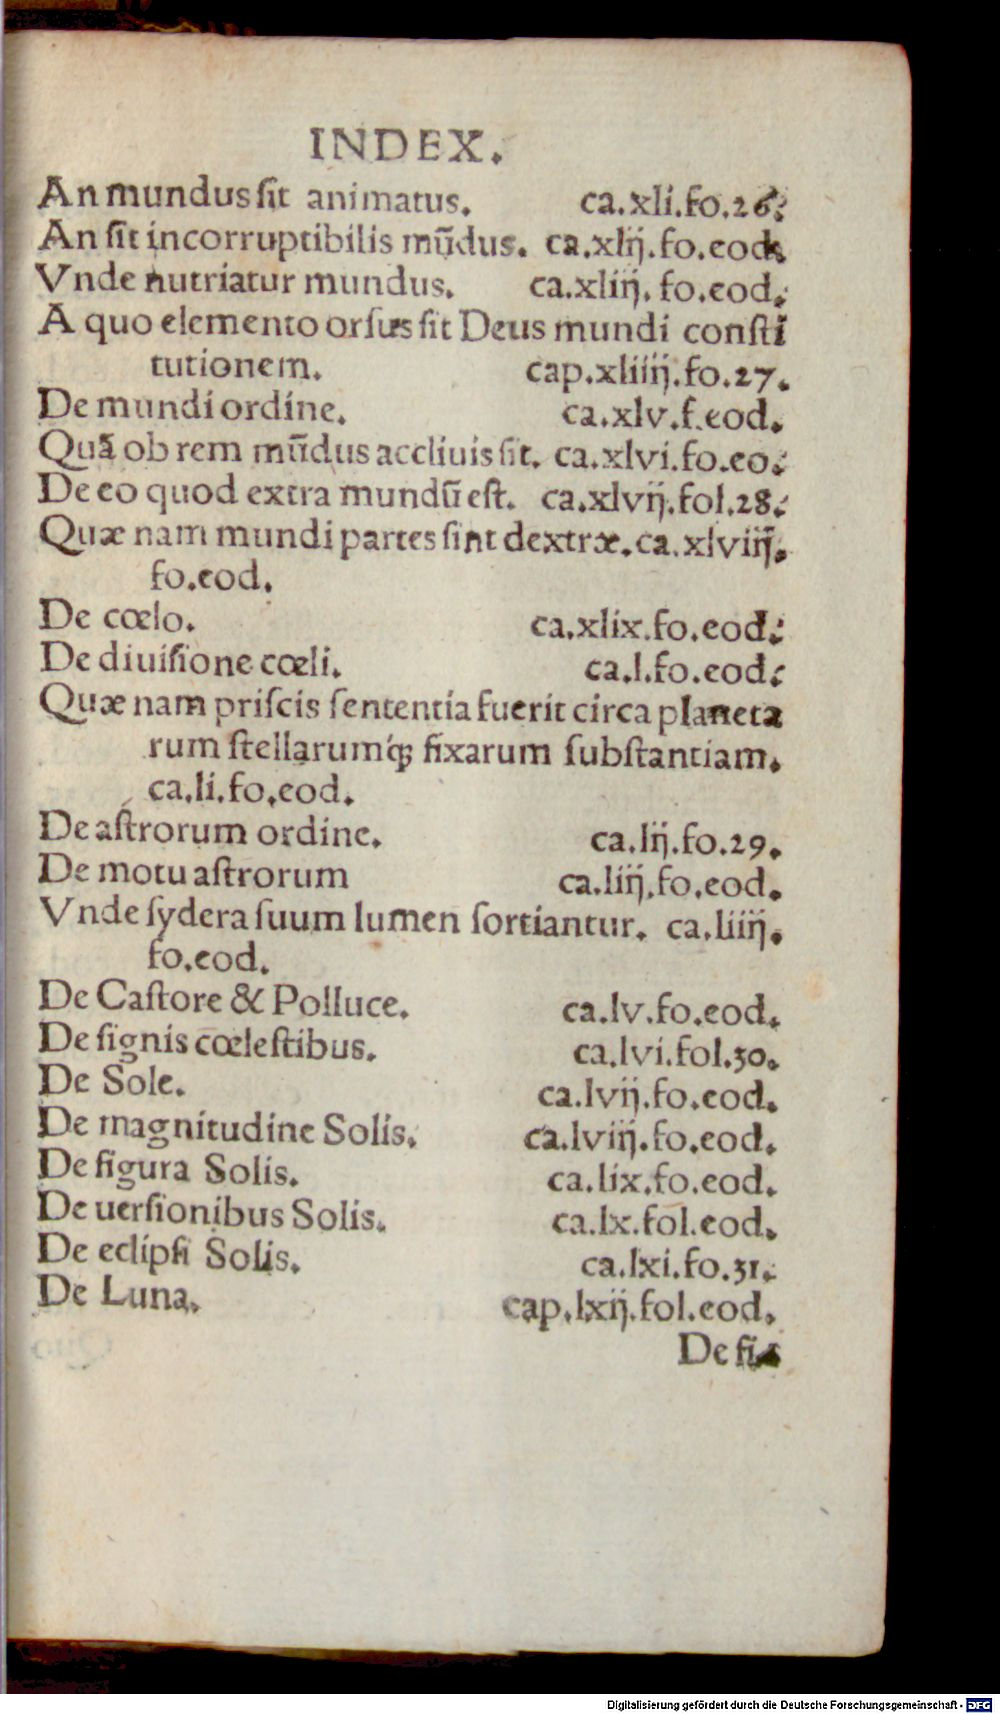 INDEX.
An mundus ſit animatus. ca.xli.fo.26.
An ſit incorruptibilis mūdus. ca.xlij.fo.eod.
Vnde nutriatur mundus. ca.xliij.fo.eod.
A quo elemento orſus ſit Deus mundi conſti
tutionem. cap.xliiij.fo.27.
De mundi ordine. ca.xlv.f.eod.
Quā ob rem mūdus accliuis ſit. ca.xlvi.fo.eo.
De eo quod extra mundū eſt. ca.xlvij.fol.28.
Quæ nam mundi partes ſint dextræ. ca.xlviij.
fo.eod.
De cœlo. ca.xlix.fo.eod.
De diuiſione cœli. ca.l.fo.eod.
Quæ nam priſcis ſententia fuerit circa planeta
rum ſtellarumq́ꝫ fixarum ſubſtantiam.
ca.li.fo.eod.
De aſtrorum ordine. ca.lij.fo.29.
De motu aſtrorum ca.liij.fo.eod.
Vnde ſydera ſuum lumen ſortiantur. ca.liiij.
fo.eod.
De Caſtore & Polluce. ca.lv.fo.eod.
De ſignis cœleſtibus. ca.lvi.fol.30.
De Sole. ca.lvij.fo.eod.
De magnitudine Solis. ca.lviij.fo.eod.
De figura Solis. ca.lix.fo.eod.
De uerſionibus Solis. ca.lx.fol.eod.
De eclipſi Solis. ca.lxi.fo.31.
De Luna. cap.lxij.fol.eod.
De fi
Digitalisierung gefördert durch die Deutsche Forschungsgemeinschaft - DFG